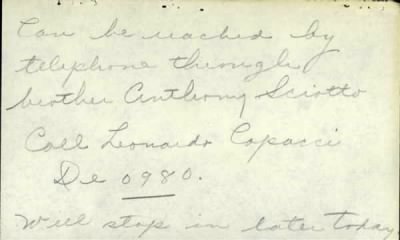 Can be reached by
telephone through
brother Anthony Sciotto
Call Leonardo Capacci
De 0980.
Will stop in later today